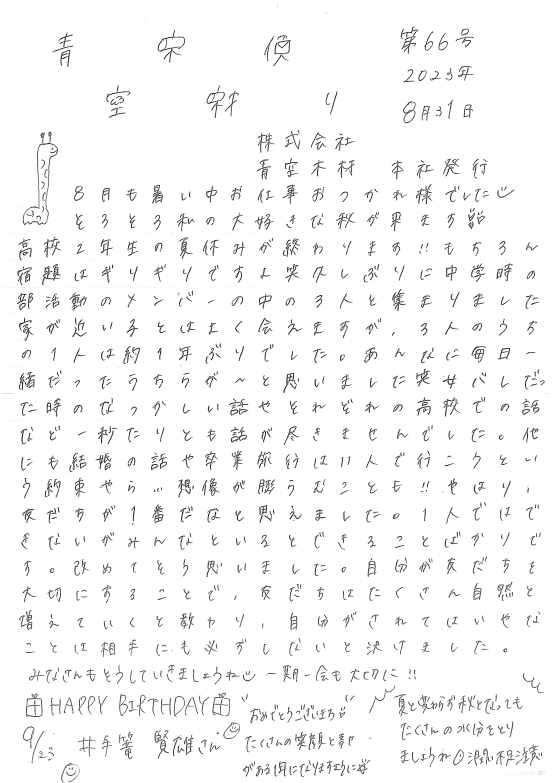 青空便り
第66号
2023年
8月31日
株式会社
青空木材 本社発行
8月も暑い中お仕事おつかれ様でした
そろそろ私の大好きな秋が来ます
高校2年生の夏休みが終わります!!もちろん
宿題はギリギリですよ笑久しぶりに中学時の
部活動のメンバーの中の3人と集まりました
家が近い子とはよく会えますが、3人のうち
の1人は約1年ぶりでした。あんなに毎日一
緒だったうちらが〜と思いました笑女バレだっ
た時のなつかしい話やそれぞれの高校での話
など一秒たりとも話が尽きませんでした。他
にも結婚の話や卒業旅行は11人で行こうとい
う約束やら…想像が膨らむことも!!やはり、
友だちが1番だなと思えました。1人ではで
きないがみんなといるとできることばかりで
す。改めてそう思いました。自分が友だちを
大切にすることで、友だちはたくさん自然と
増えていくと教わり、自分がされてはいやな
ことは相手にも必ずしないと決けました。
みなさんもそうしていきましょうね 一期一会も大切に!!
HAPPY BIRTHDAY
9/23 井手篭 賢雄さん
"おめでとうございます"
たくさんの笑顔と幸せ
がある1年になりますように
夏と変わらず秋となっても
たくさんの水分をとり
ましょうね